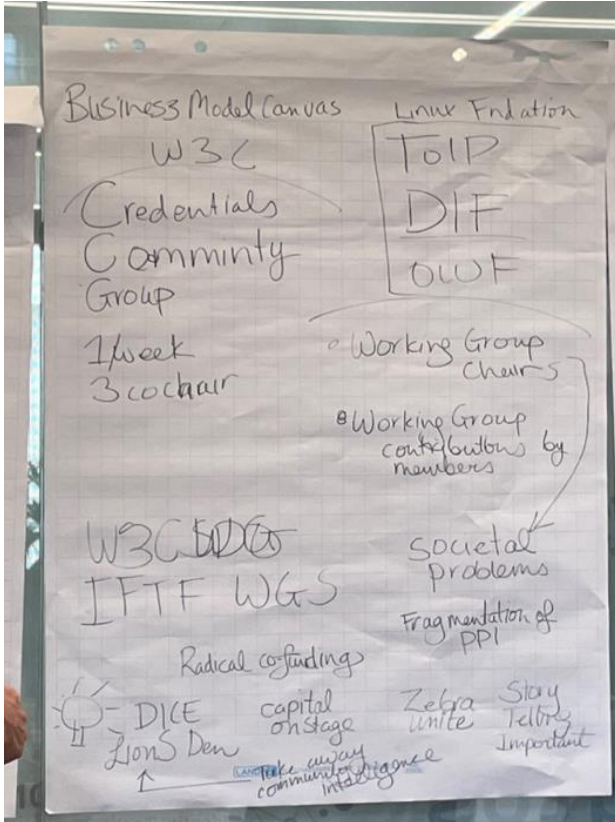 Business Model Canvas
W3C
Credentials
Comminty
Group
1/week
3 cochair
Linux Fndation
ToIP
DIF
OWF
Working Group
Chairs
Working Group
contributions by
members
W3C
IFTF WGS
Societal
problems
Fragmentation of
PPI
Radical co-funding
DICE
Lion's Den
capital
on stage
Zebra
Unite
Story
Telling
Important
Take away
community
intelligence